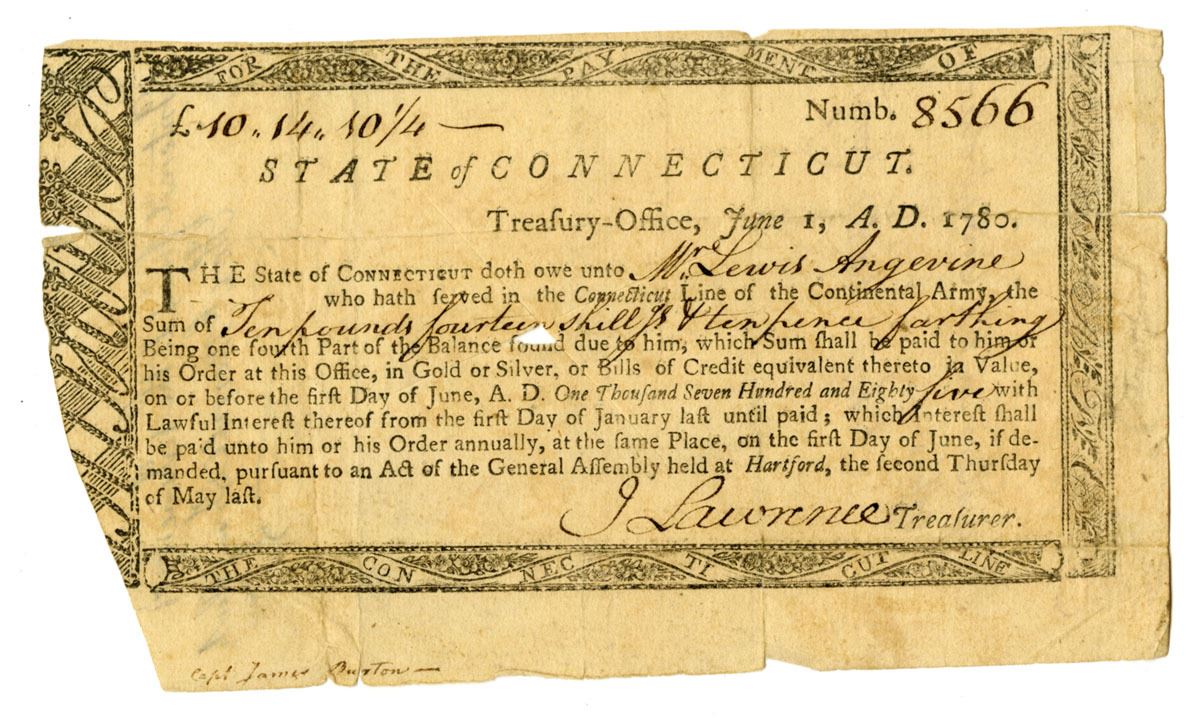 FOR THE PAY MENT OF
£10.. 14.. 10 1/4 — Numb. 8566
STATE of CONNECTICUT.
Treaſury-Office, June 1, A. D. 1780.
THE State of CONNECTICUT doth owe unto Mr. Lewis Angevine
who hath ſerved in the Connecticut Line of the Continental Army, the
Sum of Ten pounds fourteen shillgs & ten pence farthing
Being one fourth Part of the Balance found due to him, which Sum ſhall be paid to him or
his Order at this Office, in Gold or Silver, or Bills of Credit equivalent thereto in Value,
on or before the firſt Day of June, A. D. One Thouſand Seven Hundred and Eighty-five with
Lawful Intereſt thereof from the firſt Day of January laſt until paid; which Intereſt ſhall
be paid unto him or his Order annually, at the ſame Place, on the firſt Day of June, if de-
manded, purſuant to an Act of the General Aſſembly held at Hartford, the ſecond Thurſday
of May laſt.
J Lawrence Treaſurer.
THE CON NEC TI CUT LINE
Capt James Burton —